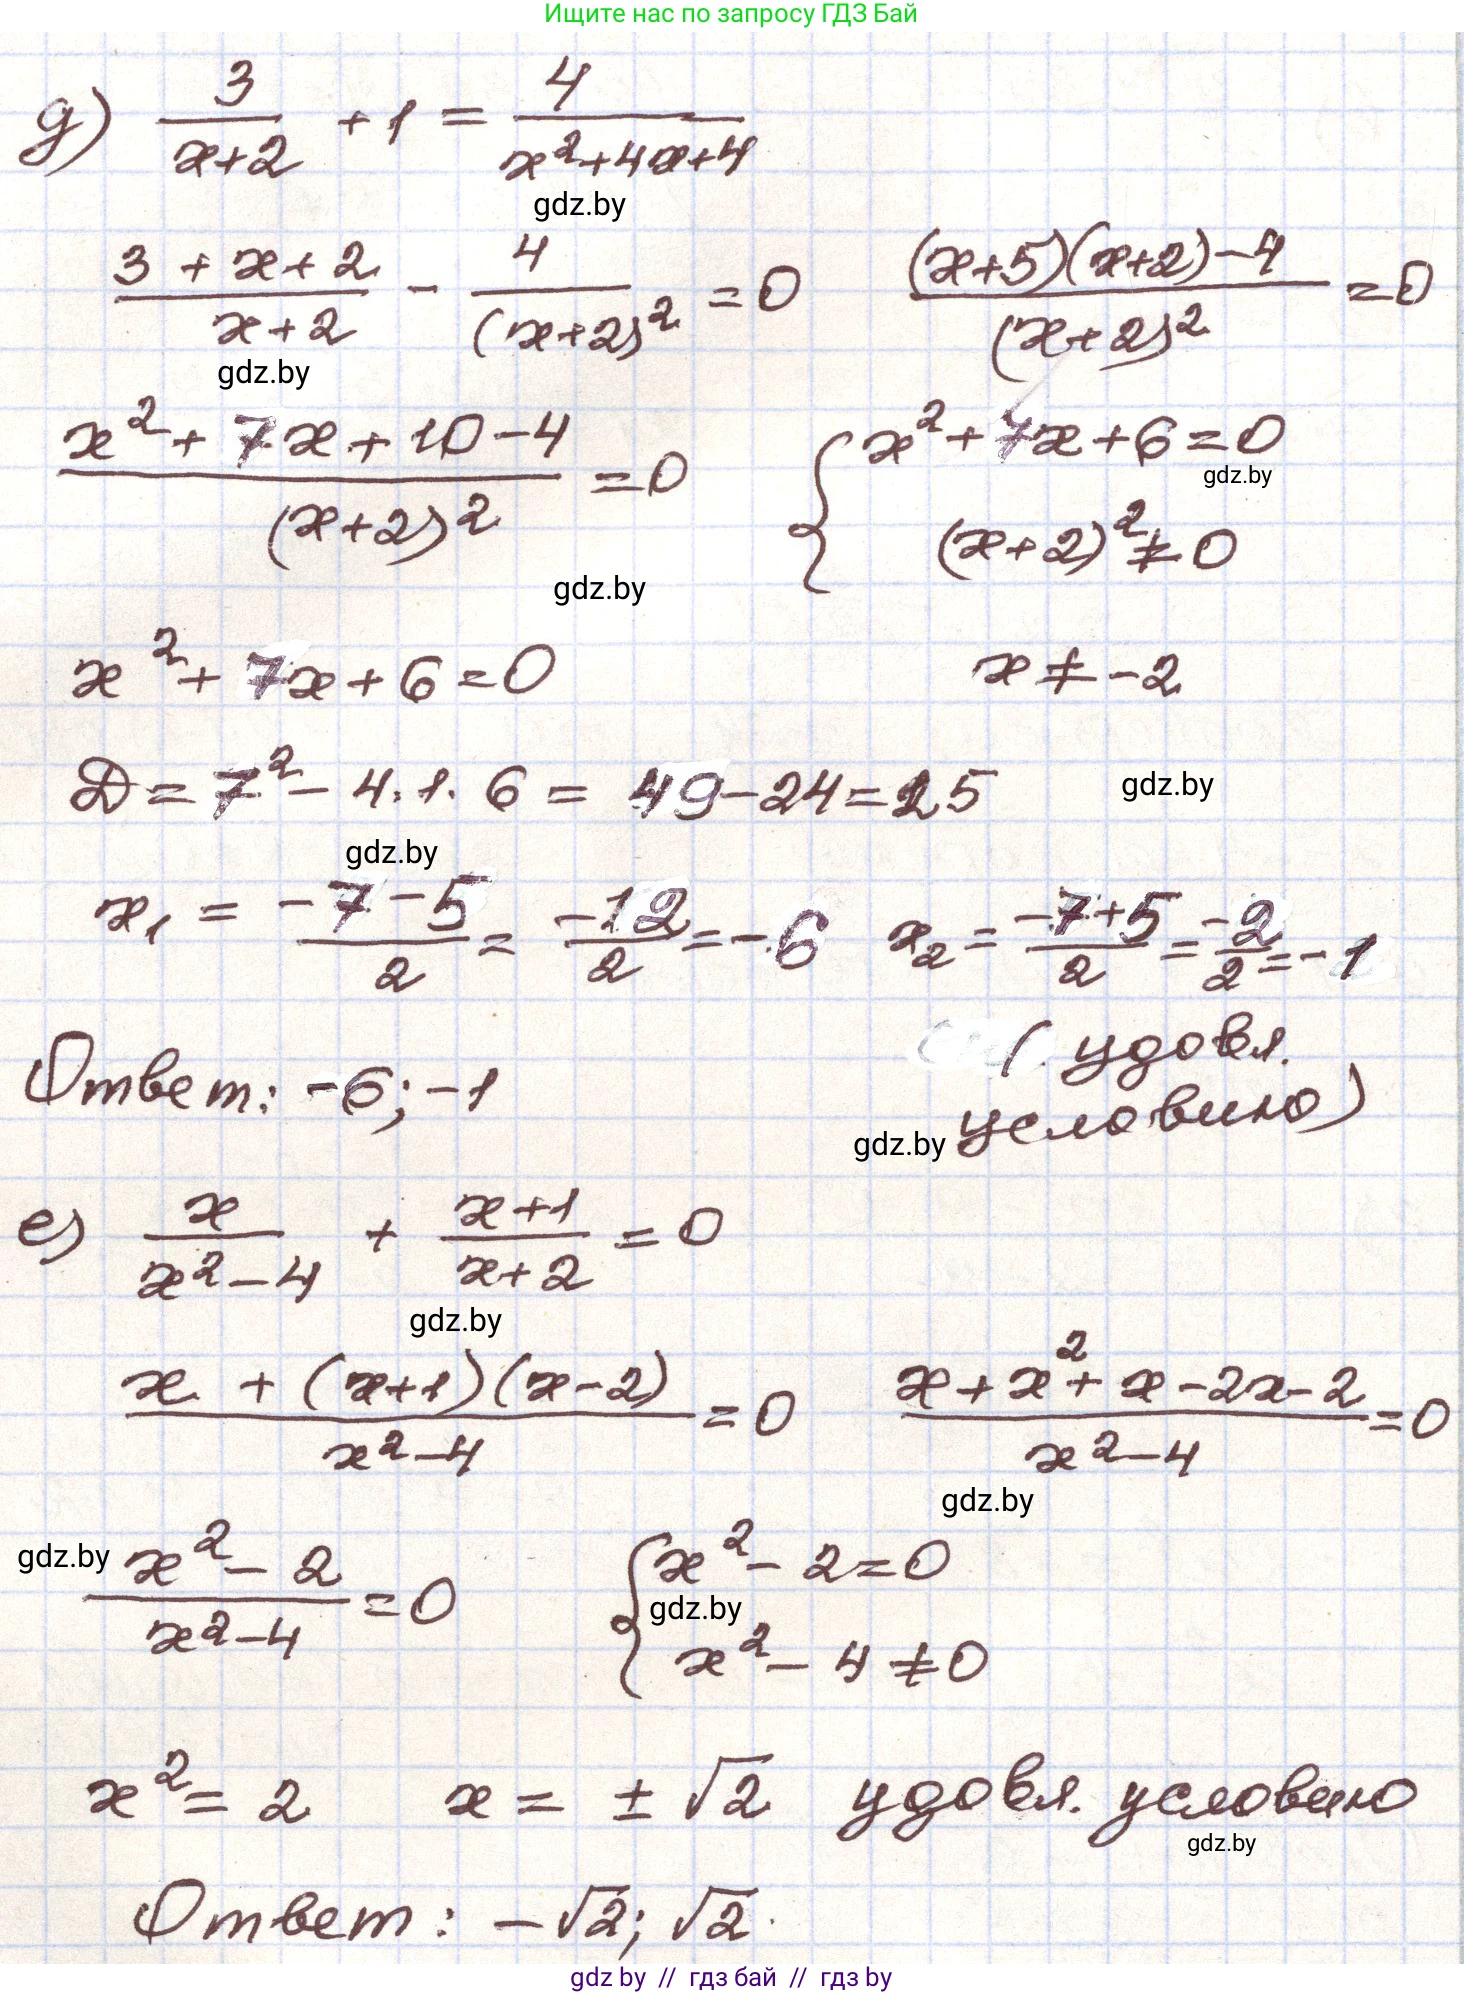 Ищите нас по запросу ГДЗ Бай
д) 3/(x+2) + 1 = 4/(x²+4x+4)
gdz.by
(3+x+2)/(x+2) - 4/(x+2)² = 0   ((x+5)(x+2)-4)/(x+2)² = 0
gdz.by
(x²+7x+10-4)/(x+2)² = 0   { x²+7x+6=0
gdz.by
(x+2)² ≠ 0
gdz.by
x²+7x+6=0   x ≠ -2
D = 7² - 4·1·6 = 49-24=25   gdz.by
gdz.by
x₁ = (-7-5)/2 = -12/2 = -6   x₂ = (-7+5)/2 = -2/2 = -1
(удовл.
Ответ: -6; -1   gdz.by условию)
е) x/(x²-4) + (x+1)/(x+2) = 0
gdz.by
(x+(x+1)(x-2))/(x²-4) = 0   (x+x²+x-2x-2)/(x²-4) = 0
gdz.by
gdz.by (x²-2)/(x²-4) = 0   { x²-2=0
gdz.by
x²-4 ≠ 0
x²=2   x = ±√2 удовл. условию
gdz.by
Ответ: -√2; √2.
gdz by // гдз бай // гдз by